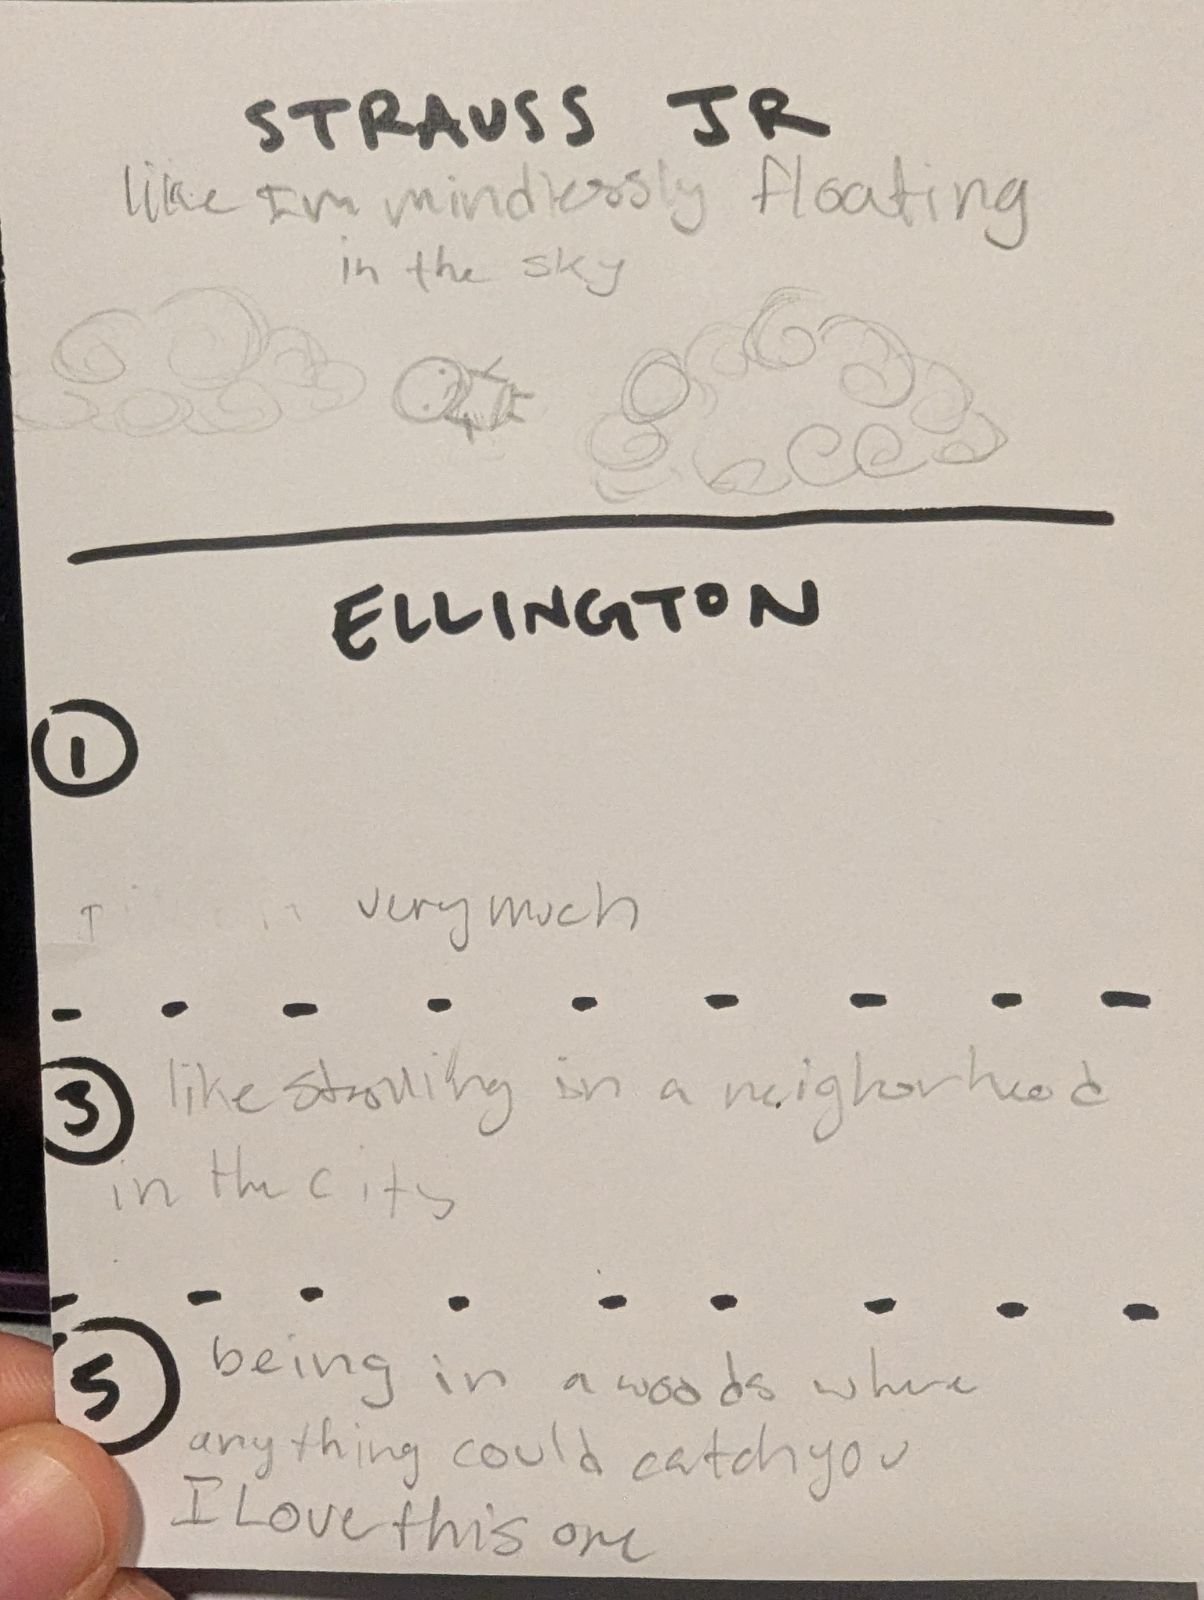 STRAUSS JR
like Im mindlessly floating
in the sky
ELLINGTON
1
I very much
3 like strolling in a neighorhood
in the city
5 being in a woods where
anything could catch you
I Love this one